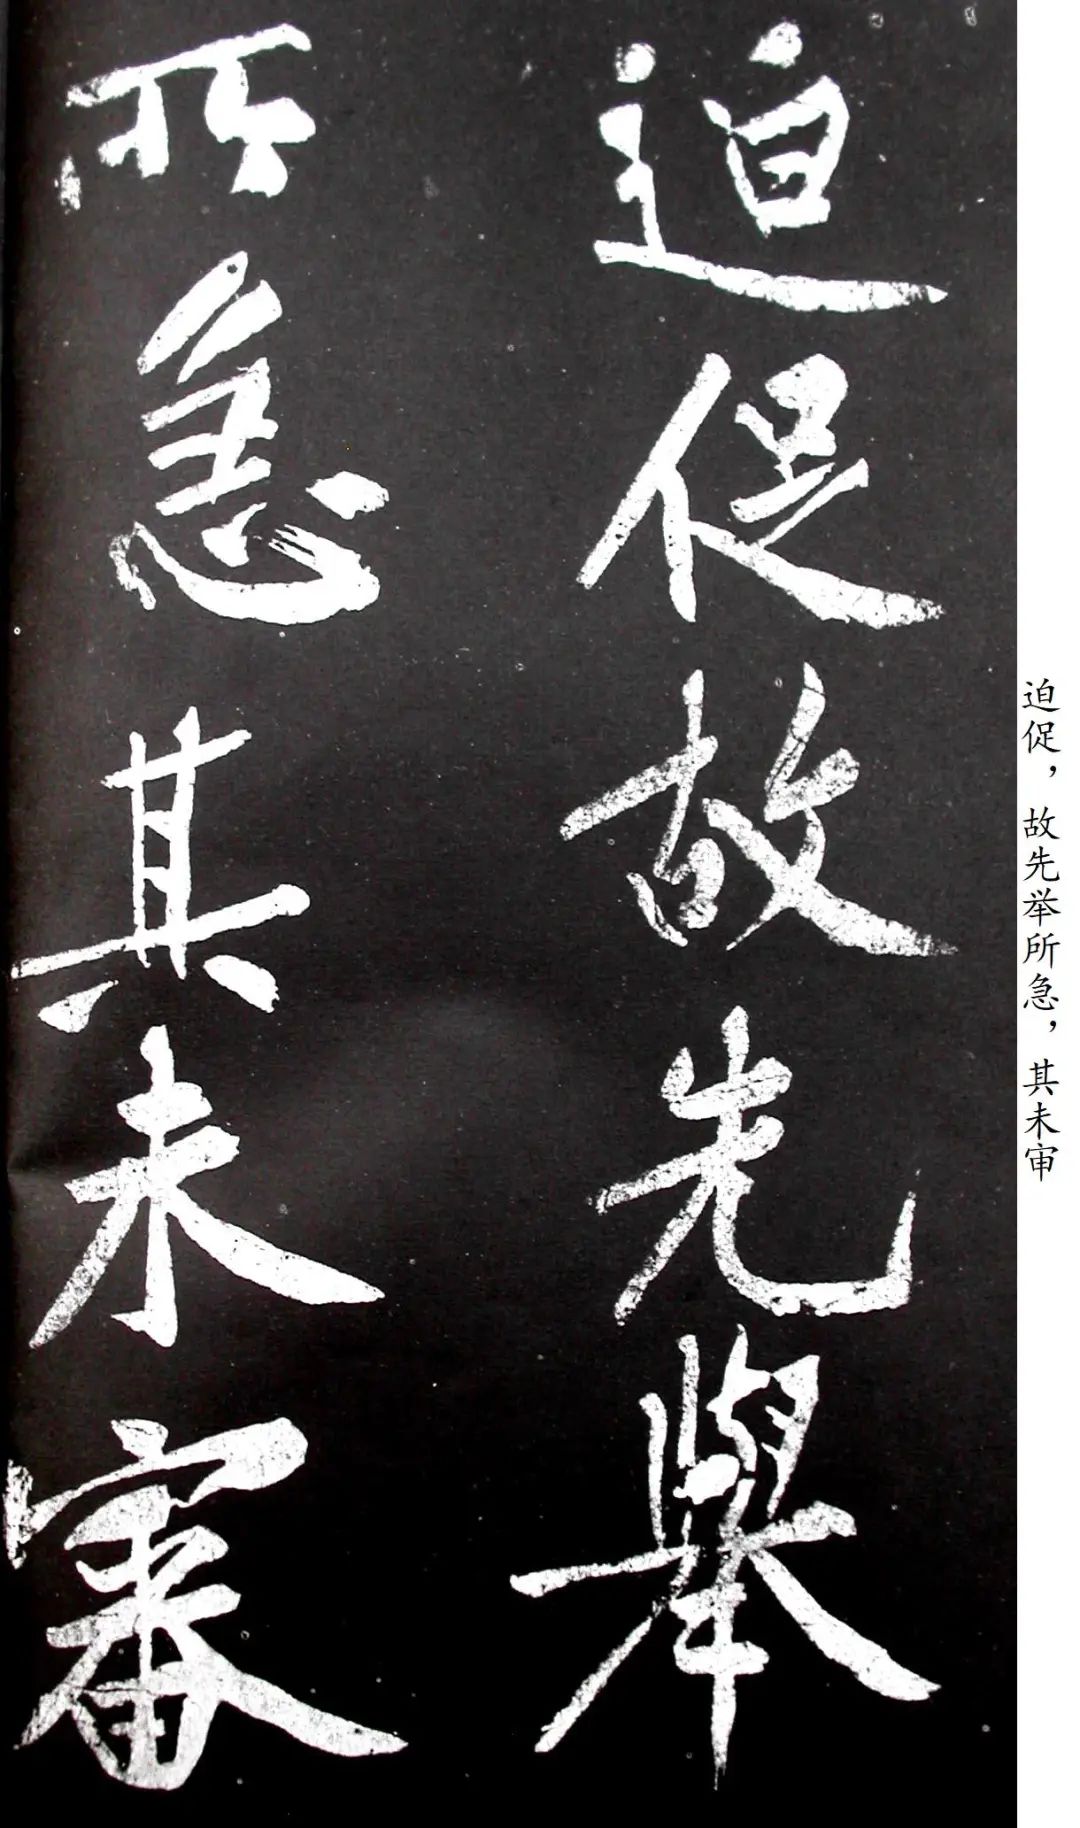 迫促故先舉
所急其未審
迫促，故先举所急，其未审